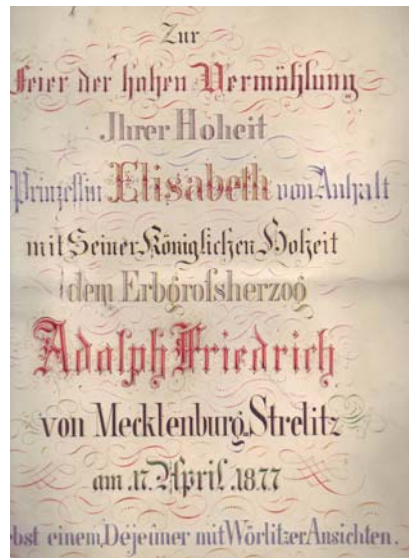 Zur
Feier der hohen Vermählung
Ihrer Hoheit
Prinzessin Elisabeth von Anhalt
mit Seiner Königlichen Hoheit
dem Erbgrofsherzog
Adolph Friedrich
von Mecklenburg-Strelitz
am 17. April 1877
ebst einem Dejeuner mit Wörlitzer Ansichten.